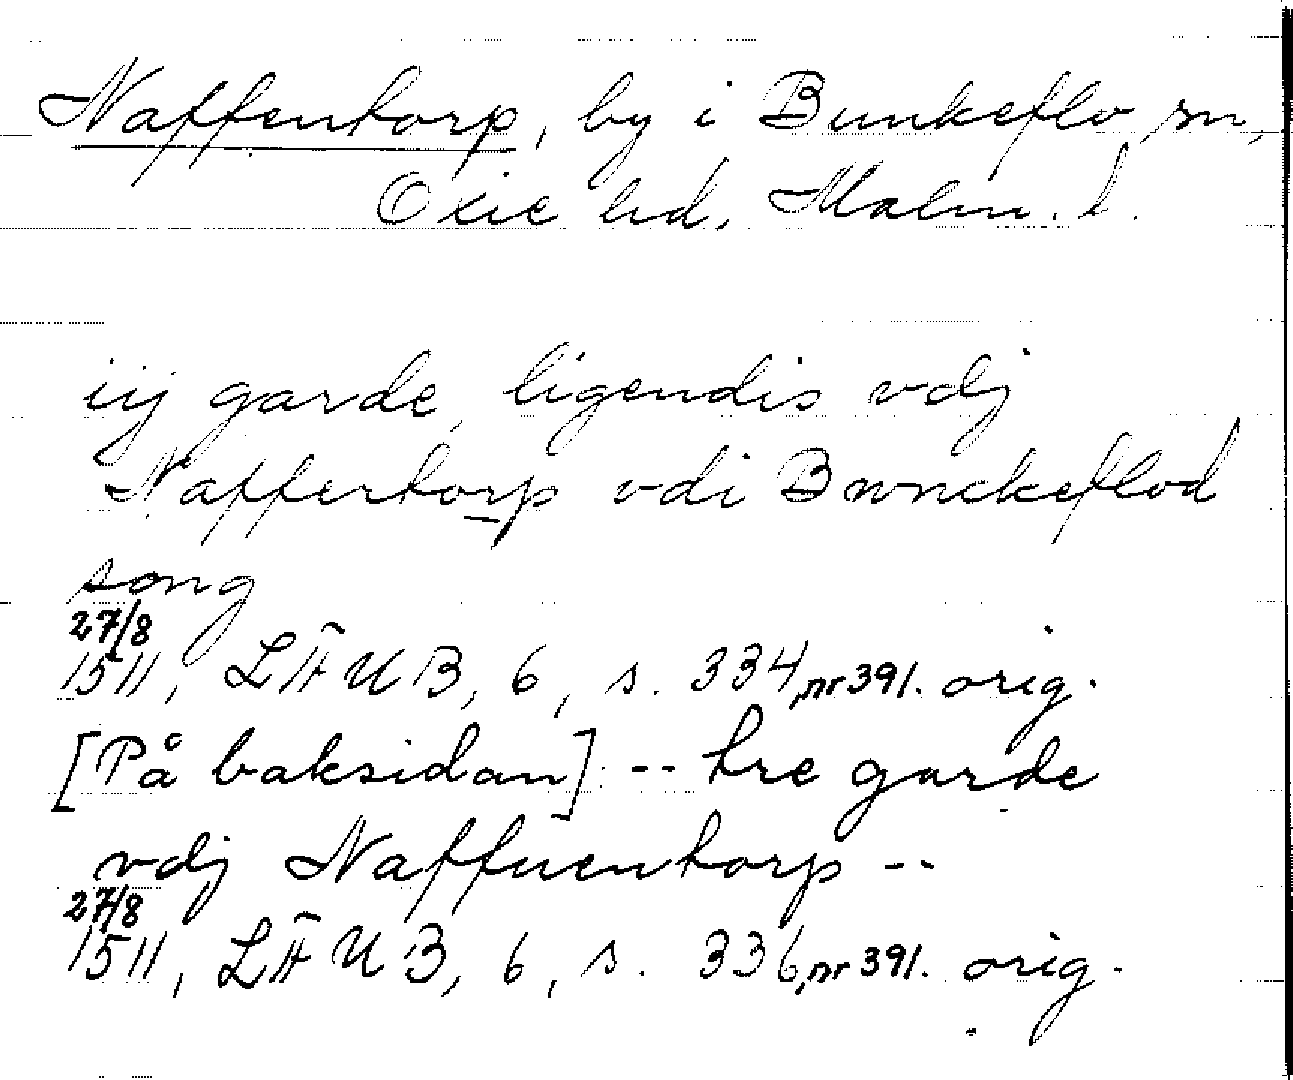 Naffentorp, by i Bunkeflo sn,
Oxie hd, Malm. l.
iij garde, ligendis vdj
Naffertorp vdi Bwnckeflod
song
27/8
1511, LÄUB, 6, s. 334, nr 391. orig.
[På baksidan] -- tre garde
vdj Naffuentorp --
27/8
1511, LÄUB, 6, s. 336, nr 391. orig.